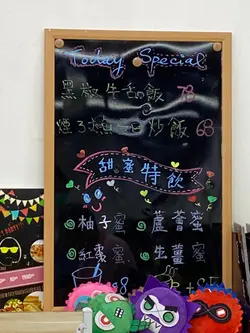 Today Special
黑椒牛舌飯 78
煙三文魚炒飯 68
甜蜜特飲
柚子蜜 蘆薈蜜
紅棗蜜 生薑蜜